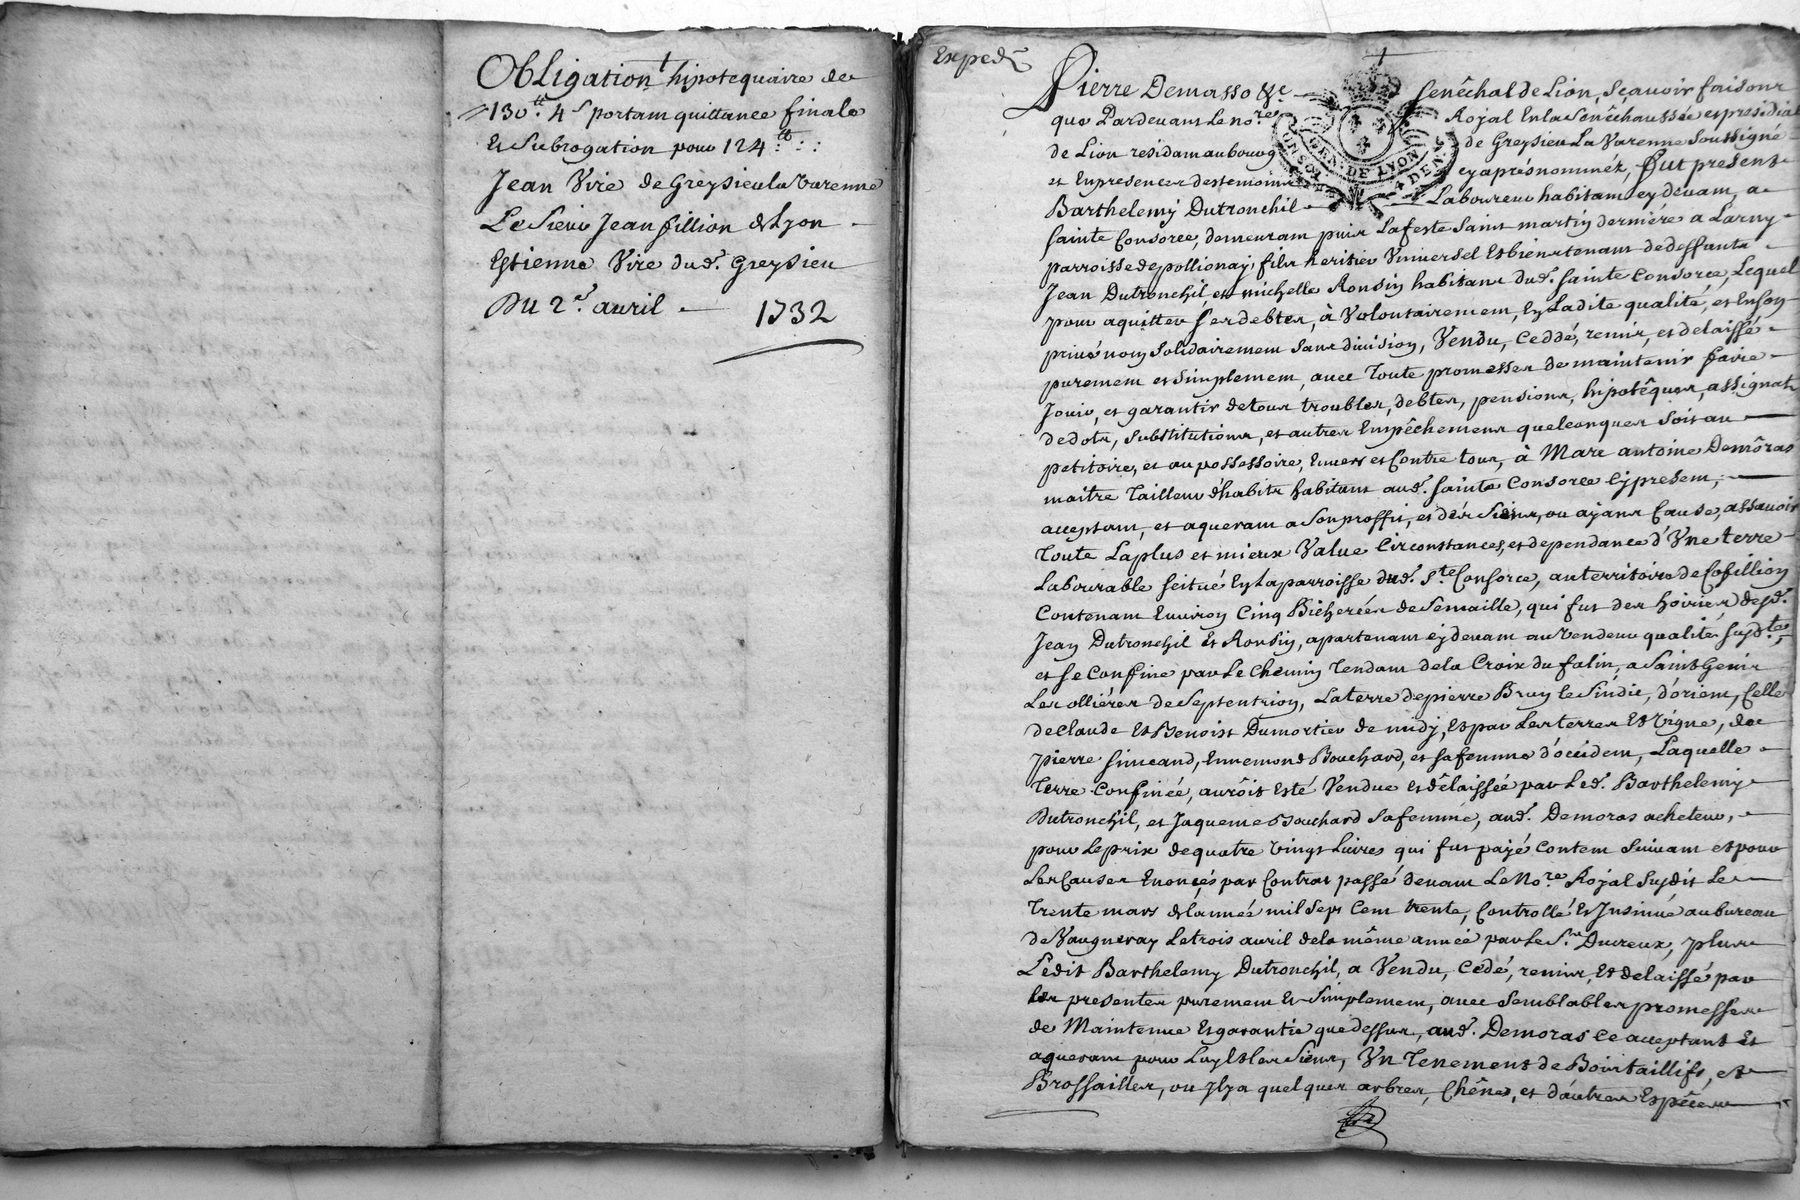 Obligation hipotequaire de
130.tt 4.s portam quittance finale
Et Subrogation pour 124.tt
Jean Vire de Greysieu la Varenne
Le Sieur Jean fillion de Lyon
Estienne Vire dud. Greysieu
Du 2.e avril
1732
Exped.
Pierre Demasso &c. Senêchal de Lion, Sçavoir faisons
que Pardevant Le no.re Royal En la Senêchaussée et presidial
de Lion residam au bourg de Greysieu La Varenne Soussigné
et En presence des temoins cy aprés nommés, fut present
Barthelemy Dutronchil Laboureur habitam cy devam, a
Sainte Consorce, demeuram puis La feste Saint martin derniére a Larny
parroisse de pollionay, fils heritier Universel Et bien tenant de deffunts
Jean Dutronchil, et michelle Ronsin habitans dud. Sainte Consorce, Lequel
pour aquitter Ses debtes, à Volontairement, En Ladite qualité, et En Son
privé nom Solidairement Sans division, Vendu, Ceddé, remis, et delaissé
purement et Simplement, avec Toute promesses de maintenir faire
Jouir, et garantir de tous troubles, debtes, pensions, hipotêques, assignats
de dots, Substitutions, et autres Empêchements quelconques Soit au
petitoire, et au possessoire, Envers et Contre tous, à Marc antoine Demôras
maitre Tailleur d'habits habitant aud. Sainte Consorce Cy present,
acceptam, et aqueram a Son proffit, et des Siens, ou ayans Cause, assavoir
Toute La plus et mieux Value Circonstances, et dependance d'Une terre
Labourable Seitué En La parroisse dud. S.te Consorce, au territoire de Cofillion
Contenam Environ Cinq Bicherées de Semaille, qui fut des hoiries desd.
Jean Dutronchil Et Ronsin, apartenant cy devam au Vendeur qualités Susd.tes
et Se Confine par Le Chemin Tendam de la Croix du falin, a Saint Genis
Les ollières de Septentrion, La terre de pierre Brun le Sindic, d'orient, Celle
de Claude Et Benoist Dumortier de midy, Et par Les terres Et Vigne, de
pierre Simeand, Ennemond Bouchard, et sa femme d'occident, Laquelle
Terre Confinée, auroit Esté Vendue Et délaissée par Led. Barthelemy
Dutronchil, et Jaqueme Bouchard Sa femme, aud. Demoras acheteur,
pour Le prix de quatre Vingt Livres qui fut payé contem Suivant et pour
Les Causes Enoncés par Contrat passé devant Le No.re Royal Susdit Le
Trente mars de l'année mil Sept Cent trente, Controllé Et Insinué au bureau
de Vaugneray Le trois avril de la même année par Le S.r Ducreux, plus
Ledit Barthelemy Dutronchil, a Vendu, Cédé, remis, Et delaissé par
les presentes purement Et Simplement, avec Semblables promesses
de Maintenue Et garantie que dessus, aud. Demoras ce acceptant Et
aquerant pour Luy Et les Siens, Un Tenement de Bois taillifs, et
Brossailles, ou Il y a quelques arbres, Chênes, et d'autres Espêces
GEN. DE LYON